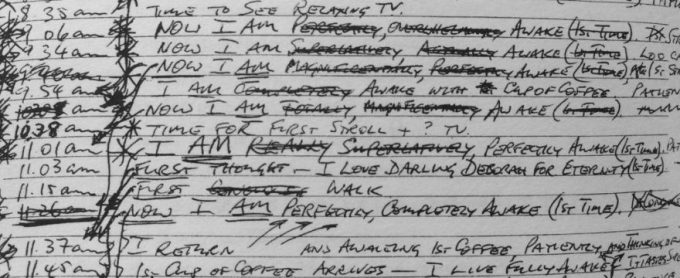 8.35 am TIME TO SEE RELAXING TV.
9.06 am NOW I AM PERFECTLY, OVERWHELMINGLY AWAKE (1ST TIME).
9.34 am NOW I AM SUPERLATIVELY, ACTUALLY AWAKE (1ST TIME)
NOW I AM MAGNIFICENTALLY, PERFECTLY AWAKE (1ST TIME)
9.54 am I AM COMPLETELY AWAKE WITH CUP OF COFFEE, PATIEN
NOW I AM TOTALLY, MAGNIFICENTALLY AWAKE (1ST TIME)
10.38 am TIME FOR FIRST STROLL + ? TV.
11.01 am I AM REALLY SUPERLATIVELY, PERFECTLY AWAKE (1ST TIME)
11.03 am FIRST THOUGHT – I LOVE DARLING DEBORAH FOR ETERNITY (1ST TIME)
11.15 am FIRST WALK
11.26 am NOW I AM PERFECTLY, COMPLETELY AWAKE (1ST TIME).
11.37 am I RETURN AND AWAITING 1ST COFFEE, PATIENTLY, AND THINKING OF
11.45 am 1ST CUP OF COFFEE ARRIVES – I LIVE FULLY AWAKE